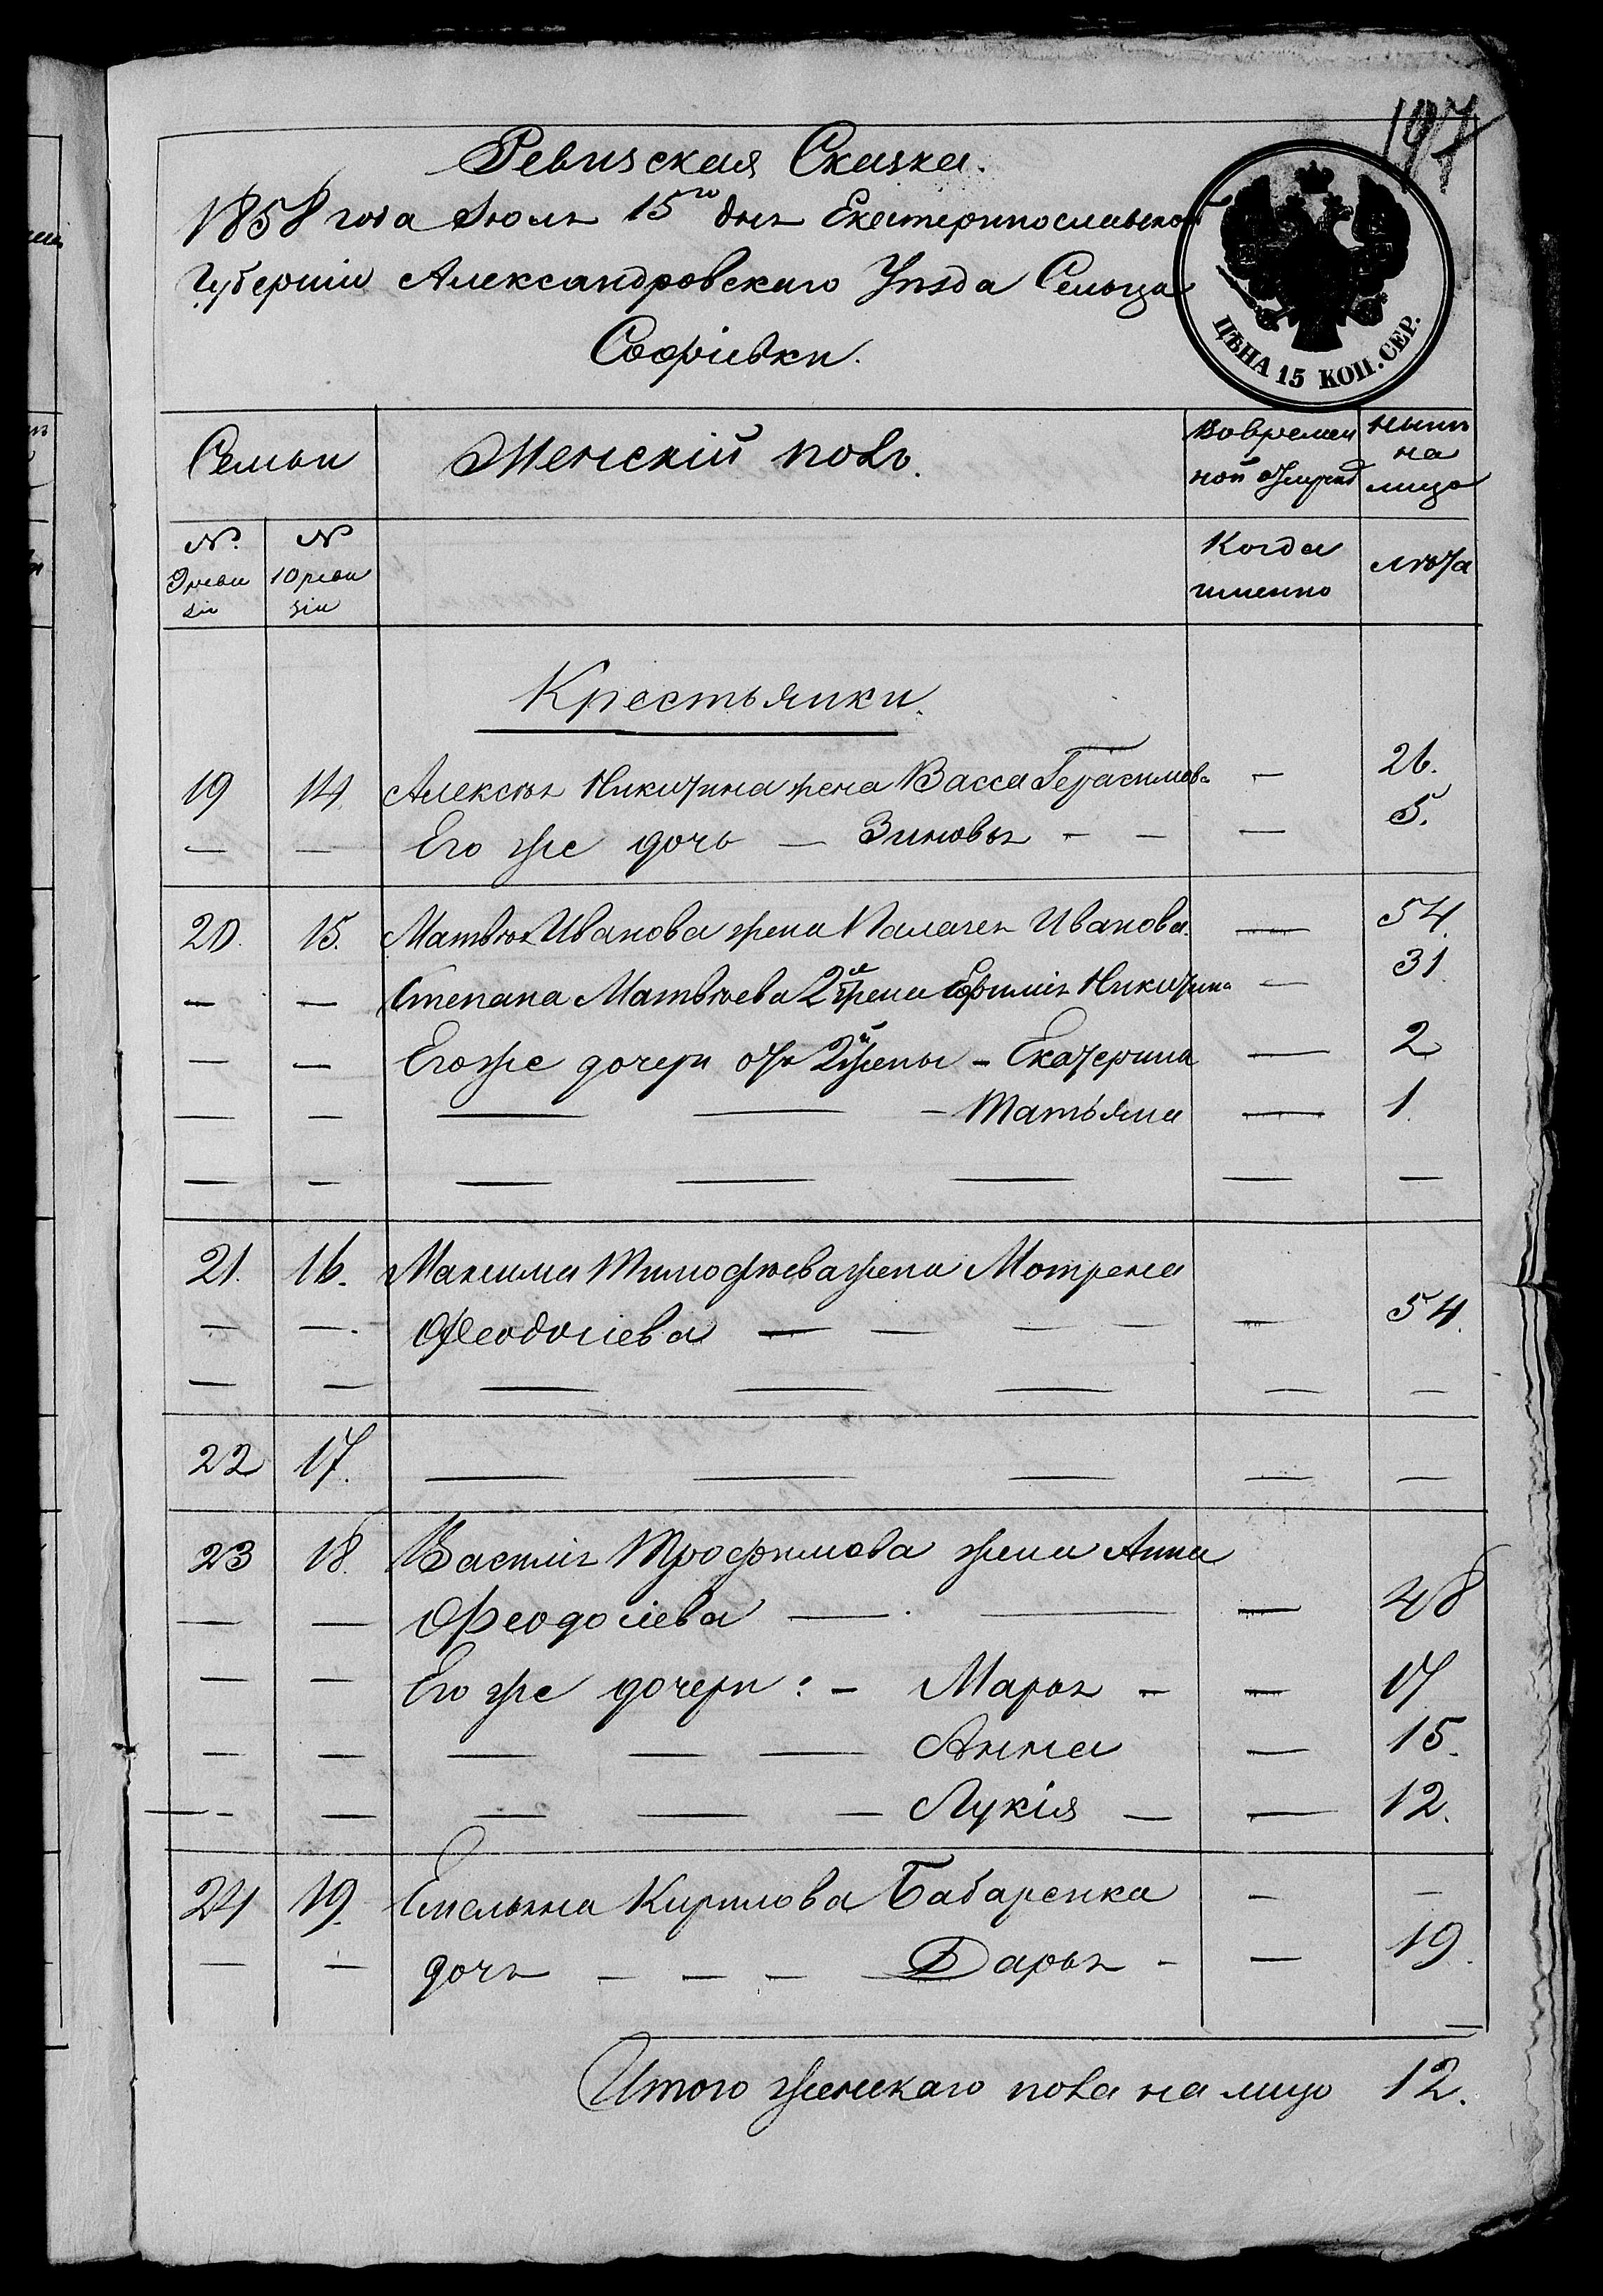 197
Ревизская Сказка.
1858 года Июля 15го дня Екатеринославской
Губерніи Александровскаго Уѣзда Сельца
Софіевки.
ЦѢНА 15 КОП. СЕР.
Семьи Женскій полъ. Во времен ной отлуч Нынѣ на лицо
№ 9 реви зіи № 10 реви зіи Когда именно лѣта
Крестьянки.
19 14. Алексѣя Никитина жена Васса Герасимова — 26.
— — Его же дочь — Зиновья - — — 5.
20. 15. Матвѣя Иванова жена Палагея Иванова. — 54.
— — Степана Матвѣева 2я жена Ефимія Никитина — 31
— — Его же дочери отъ 2й жены - Екатерина — 2
— — — — - Татьяна — 1.
— — — — — — —
21. 16. Максима Тимофѣева жена Мотрена
— —. Феодосіева — — — — — 54.
— — — — — — —
22 17. — — — — —
23 18. Василія Трофимова жена Анна
— — Феодосіева — . — — 48
— — Его же дочери: - Марья - — 17.
— — — — — Анна — 15.
— - — — — — Лукія — — 12.
24 19. Емельяна Кирилова Бабаренка — —
— — дочь — — — — Дарья - — 19.
Итого женскаго пола на лицо 12.